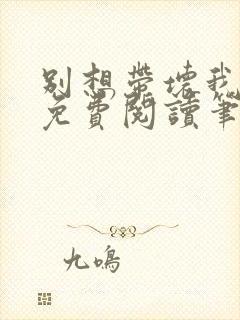 别想带坏我
免费阅读笔
九鸣